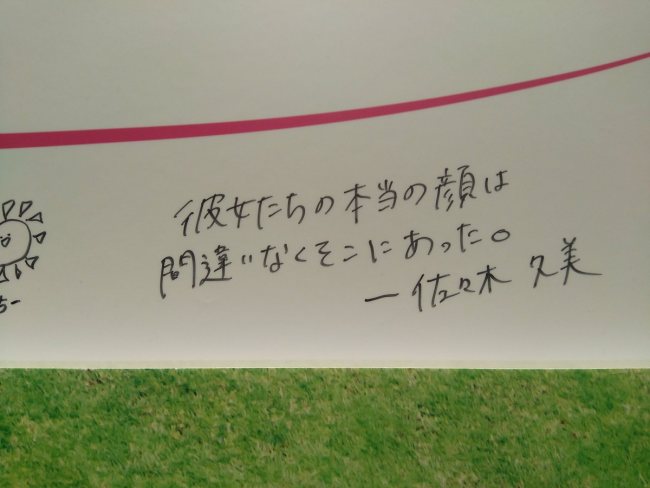 彼女たちの本当の顔は
間違いなくそこにあった。
ー佐々木 久美